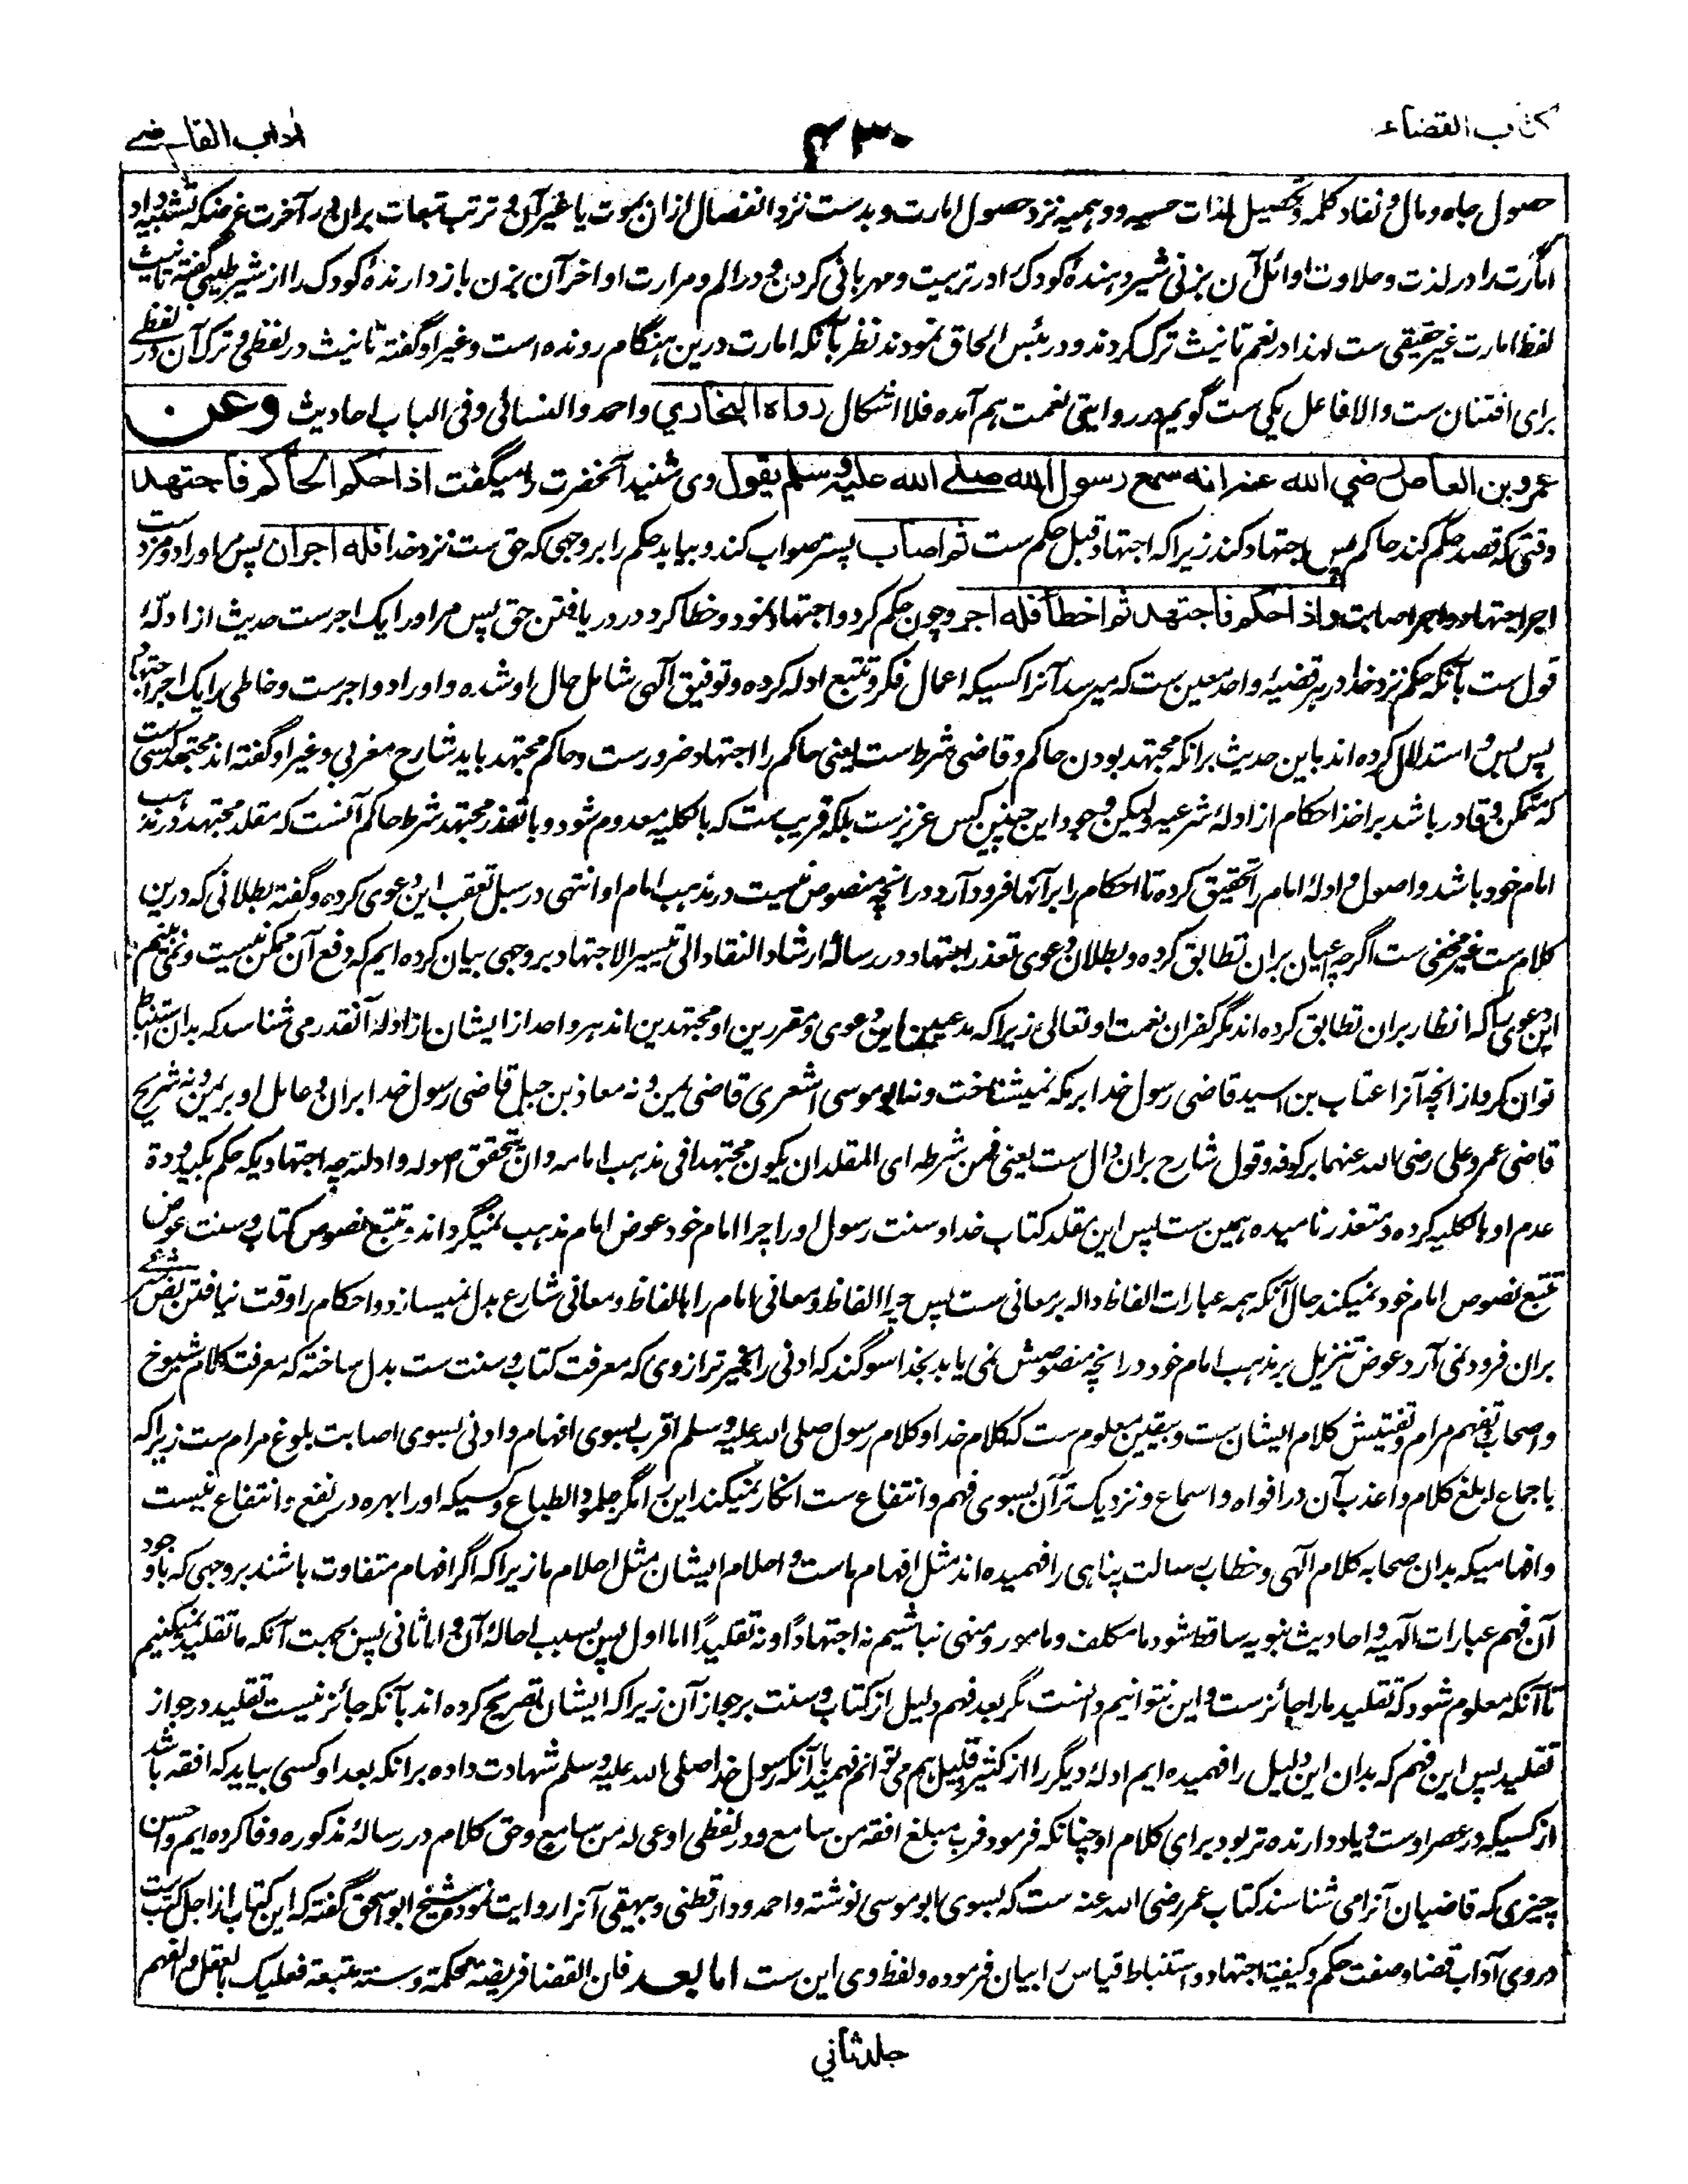 کتاب القضاء
۴۳۰
اداب القاضے
حصول جاه ومال و نفاد کلمہ و تحصیل لذات حسیہ و وہمیہ نزد حصول امارت وبدست نزد انفصال ازان بموت یا غیر آن و ترتب تبعات بران در آخرت غرضکہ تشبیہ داد
امارت را در لذت و حلاوت اوائل آن بزنی شیر دہندۂ کودک را در تربیت و مہربانی کردن و در الم و مرارت اواخر آن بزن باز دارندۂ کودک را از شیر طیبی گفتہ تانیث
لفظ امارت غیر حقیقی ست لہذا در نعم تانیث ترک کردند و در بئس الحاق نمودند نظر بآنکہ امارت درین ہنگام رونده است وغیر او گفتہ تانیث در لفظی و ترک آن در لفظے
برای افتنان ست والا فاعل یکی ست گویم در روایتی نعمت ہم آمده فلا اشکال رواه البخاري واحمد والنسائی وفی الباب احادیث وعن
عمرو بن العاص رضي الله عنه انه سمع رسول الله صلے الله علیہ وسلم یقول وی شنید آنحضرت را میگفت اذا حکم الحاکم فاجتهد
وقتی کہ قصد حکم کند حاکم پس اجتہاد کند زیرا کہ اجتہاد قبل حکم ست ثم اصاب پستر صواب کند و بیابد حکم را بروجہی کہ حق ست نزد خدا فله اجران پس مر او را دو مزد ست
اجر اجتہاد و اجر اصابت واذا حکم فاجتهد ثم اخطأ فله اجر وچون حکم کرد و اجتہاد نمود و خطا کرد در دریافتن حق پس مر او را یک اجرست حدیث از ادلۂ
قول ست بآنکہ حکم نزد خدا در ہر قضیہ واحد معین ست کہ میرسد آنرا کسیکہ اعمال فکر و تتبع ادلہ کرده و توفیق آلہی شامل حال او شده و او را دو اجرست و خاطی را یک اجر اجتہاد
پس بس و استدلال کرده اند باین حدیث برانکہ مجتہد بودن حاکم و قاضی شرط ست یعنی حاکم را اجتہاد ضرورست و حاکم مجتہد باید شارح مغربی وغیر او گفتہ اند مجتہد کسی ست
کہ متمکن و قادر باشد بر اخذ احکام از ادلۂ شرعیہ ولیکن وجود این چنین کس عزیزست بلکہ قریب ست کہ بالکلیہ معدوم شود و با تعذر مجتہد شرط حاکم آنست کہ مقلد مجتہد در مذہب
امام خود باشد و اصول و ادلۂ امام را تحقیق کرده تا احکام را بر آنہا فرود آرد در انچہ منصوص نیست در مذہب امام او انتہی در سبل تعقب این دعوی کرده و گفتہ بطلانی کہ درین
کلام ست غیر مخفی ست اگرچہ اعیان بران تطابق کرده و بطلان دعوی تعذر اجتہاد در رسالۂ ارشاد النقاد الی تیسیر الاجتہاد بروجہی بیان کرده ایم کہ دفع آن ممکن نیست و نمی بینم
این دعوی را کہ انظار بران تطابق کرده اند مگر کفران نعمت او تعالی زیرا کہ مدعیین این دعوی و مقررین او مجتہدین اند ہر واحد از ایشان از ادلہ آنقدر می شناسد کہ بدان استنباط
توان کرد از انچہ آنرا عتاب بن اسید قاضی رسول خدا بر مکہ نمیشناخت و نہ ابو موسی اشعری قاضی یمن و نہ معاذ بن جبل قاضی رسول خدا بران و عامل او بر یمن و نہ شریح
قاضی عمر و علی رضی اللہ عنہما بر کوفہ و قول شارح بران دال ست یعنی فمن شرطه ای المقلد ان یکون مجتہدا فی مذہب امامه وان یتحقق اصولہ وادلتہ چہ اجتہادیکہ حکم بکیدودة
عدم او بالکلیہ کرده و متعذر نامیده ہمین ست پس این مقلد کتاب خدا و سنت رسول او را چرا امام خود عوض امام مذہب نمیگرداند و تتبع نصوص کتاب و سنت عوض
تتبع نصوص امام خود نمیکند حال آنکہ ہمہ عبارات الفاظ دالہ بر معانی ست پس چرا الفاظ و معانی امام را بالفاظ و معانی شارع بدل نمیسازد و احکام را وقت نیافتن نص شرعی
بران فرود نمی آرد عوض تنزیل بر مذہب امام خود در انچہ منصوصش نمی یابد بخدا سوگند کہ ادنی را بخیرتر ازوی کہ معرفت کتاب و سنت ست بدل ساختہ کہ معرفت کلام شیوخ
و اصحاب و تفہم مرام و تفتیش کلام ایشان ست و بیقین معلوم ست کہ کلام خدا و کلام رسول صلی اللہ علیہ وسلم اقرب بسوی افہام و ادنی بسوی اصابت بلوغ مرام ست زیرا کہ
باجماع ابلغ کلام و اعذب آن در افواه و اسماع و نزدیک تر آن بسوی فہم و انتفاع ست انکار نمیکند این را مگر جلمود الطباع و کسیکہ او را بہره در نفع و انتفاع نیست
و افہامیکہ بدان صحابہ کلام آلہی و خطاب رسالت پناہی را فہمیده اند مثل افہام ماست و احلام ایشان مثل احلام ما زیرا کہ اگر افہام متفاوت باشند بروجہی کہ باوجود
آن فہم عبارات آلہیہ و احادیث نبویہ ساقط شود ما مکلف و مامور و منہی نباشیم نہ اجتہادًا و نہ تقلیدًا اما اول پس بسبب احالۂ آن و اما ثانی پس بجہت آنکہ ما تقلید نمیکنیم
تا آنکہ معلوم شود کہ تقلید ما را جائزست و این نتوانیم دانست مگر بعد فہم دلیل از کتاب و سنت بر جواز آن زیرا کہ ایشان تصریح کرده اند بآنکہ جائز نیست تقلید در جواز
تقلید پس این فہم کہ بدان این دلیل را فہمیده ایم ادلۂ دیگر را از کثیر و قلیل ہم می توانیم فہمید با آنکہ رسول خدا صلی اللہ علیہ وسلم شہادت داده برانکہ بعد او کسی بیاید کہ افقہ باشد
از کسیکہ در عصر اوست و یاد دارنده تر بود برای کلام او چنانکہ فرمود فرب مبلغ افقه من سامع و در لفظی اوعی له من سامع و حق کلام در رسالۂ مذکوره وفا کرده ایم و احسن
چیزی کہ قاضیان آنرا می شناسند کتاب عمر رضی اللہ عنہ ست کہ بسوی ابو موسی نوشتہ و احمد و دارقطنی و بیہقی آنرا روایت نموده و شیخ ابو اسحق گفتہ کہ این کتاب از اجل کتب ست
دروی آداب قضا و صفت حکم و کیفیت اجتہاد و استنباط قیاس را بیان فرموده و لفظ وی این ست اما بعد فان القضا فریضة محکمة وسنة متبعة فعلیک بالعقل والفہم
جلد ثاني